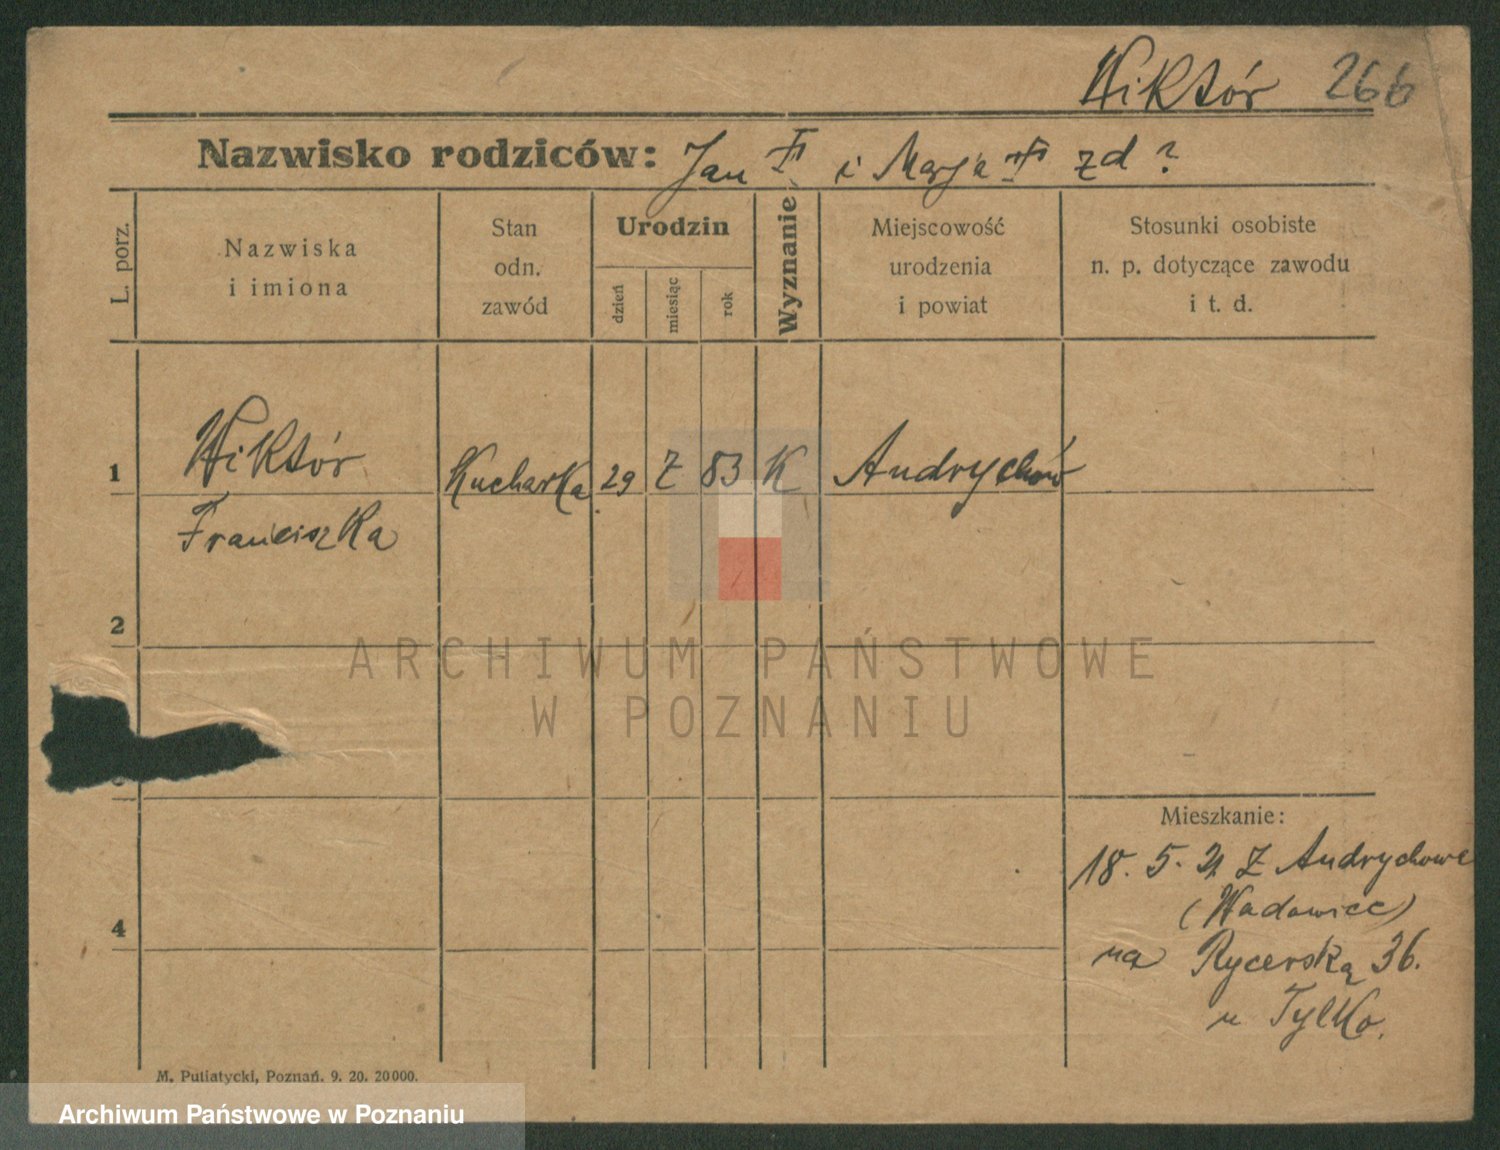 Wiktór 266
Nazwisko rodziców: Jan i Marja zd ?
L. porz.
Nazwiska
i imiona
Stan
odn.
zawód
Urodzin
dzień
miesiąc
rok
Wyznanie
Miejscowość
urodzenia
i powiat
Stosunki osobiste
n. p. dotyczące zawodu
i t. d.
1 Wiktór Kucharka 29 Z 83 K Andrychów
Franciszka
2
ARCHIWUM PAŃSTWOWE
W POZNANIU
Mieszkanie:
18. 5. 21 Z Andrychowe
4 (Wadowice)
na Rycerską 36.
u Tylko.
M. Putiatycki, Poznań. 9. 20. 20000.
Archiwum Państwowe w Poznaniu